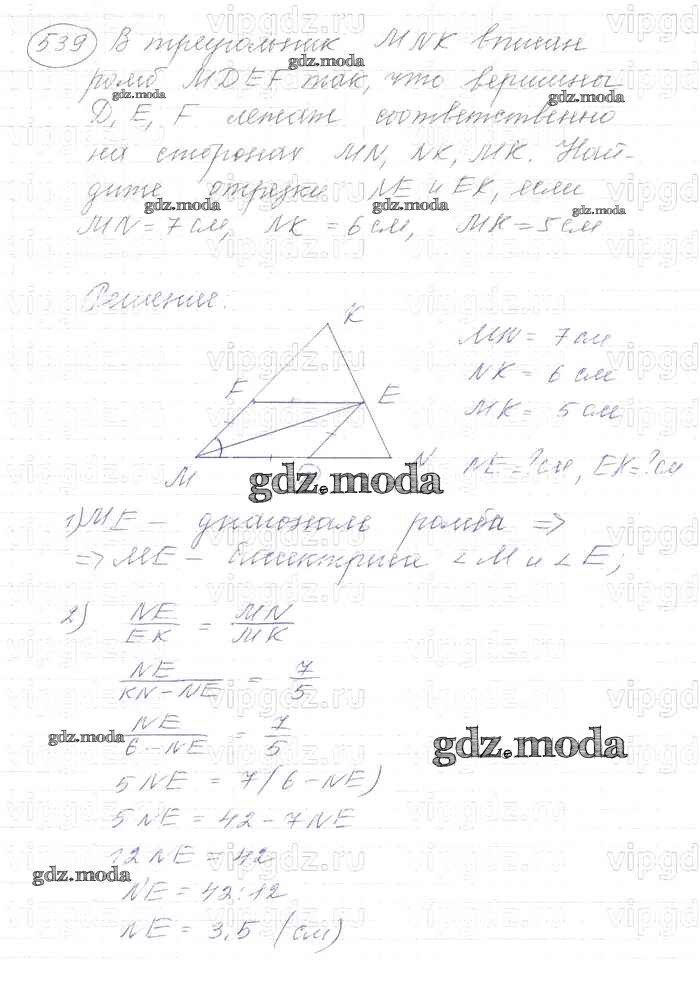 539 В треугольник MNK вписан
ромб MDEF так, что вершины
D, E, F лежат соответственно
на сторонах MN, NK, MK. Най-
дите отрезки NE и EK, если
MN = 7 см, NK = 6 см, MK = 5 см
Решение:
K
MN = 7 см
NK = 6 см
F
E
MK = 5 см
M
N
NE = ? см, EK = ? см
gdz.moda
1) ME – диагональ ромба =>
=> ME – биссектриса ∠M и ∠E;
2) NE/EK = MN/MK
NE/KN – NE = 7/5
NE/6 – NE = 7/5
gdz.moda
gdz.moda
5 NE = 7(6 – NE)
5 NE = 42 – 7NE
12 NE = 42
gdz.moda
NE = 42:12
NE = 3,5 (см)